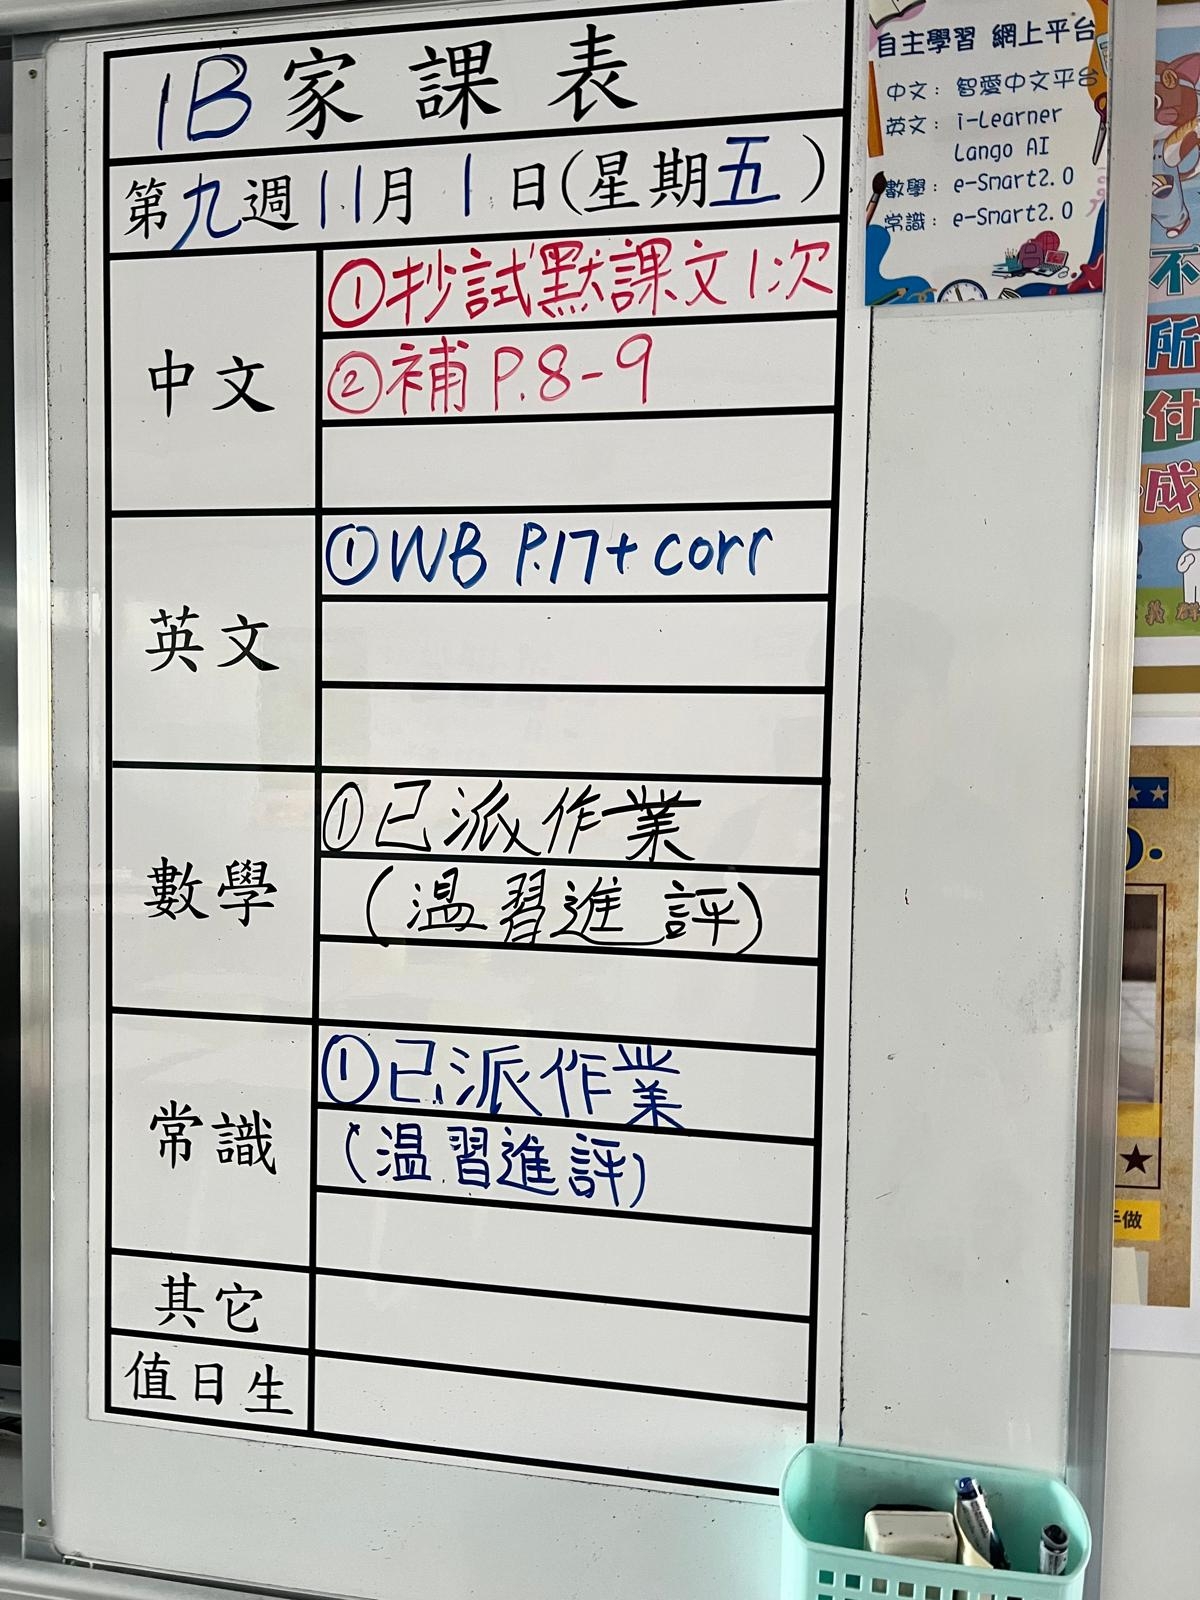 1B家課表
第九週11月1日(星期五)
中文
①抄試默課文1次
②補P.8-9
英文
①WB P.17+corr
數學
①已派作業
(溫習進評)
常識
①已派作業
(溫習進評)
其它
值日生
自主學習 網上平台
中文：智愛中文平台
英文：i-Learner
Lango AI
數學：e-Smart2.0
常識：e-Smart2.0
不
所
付
成
手做